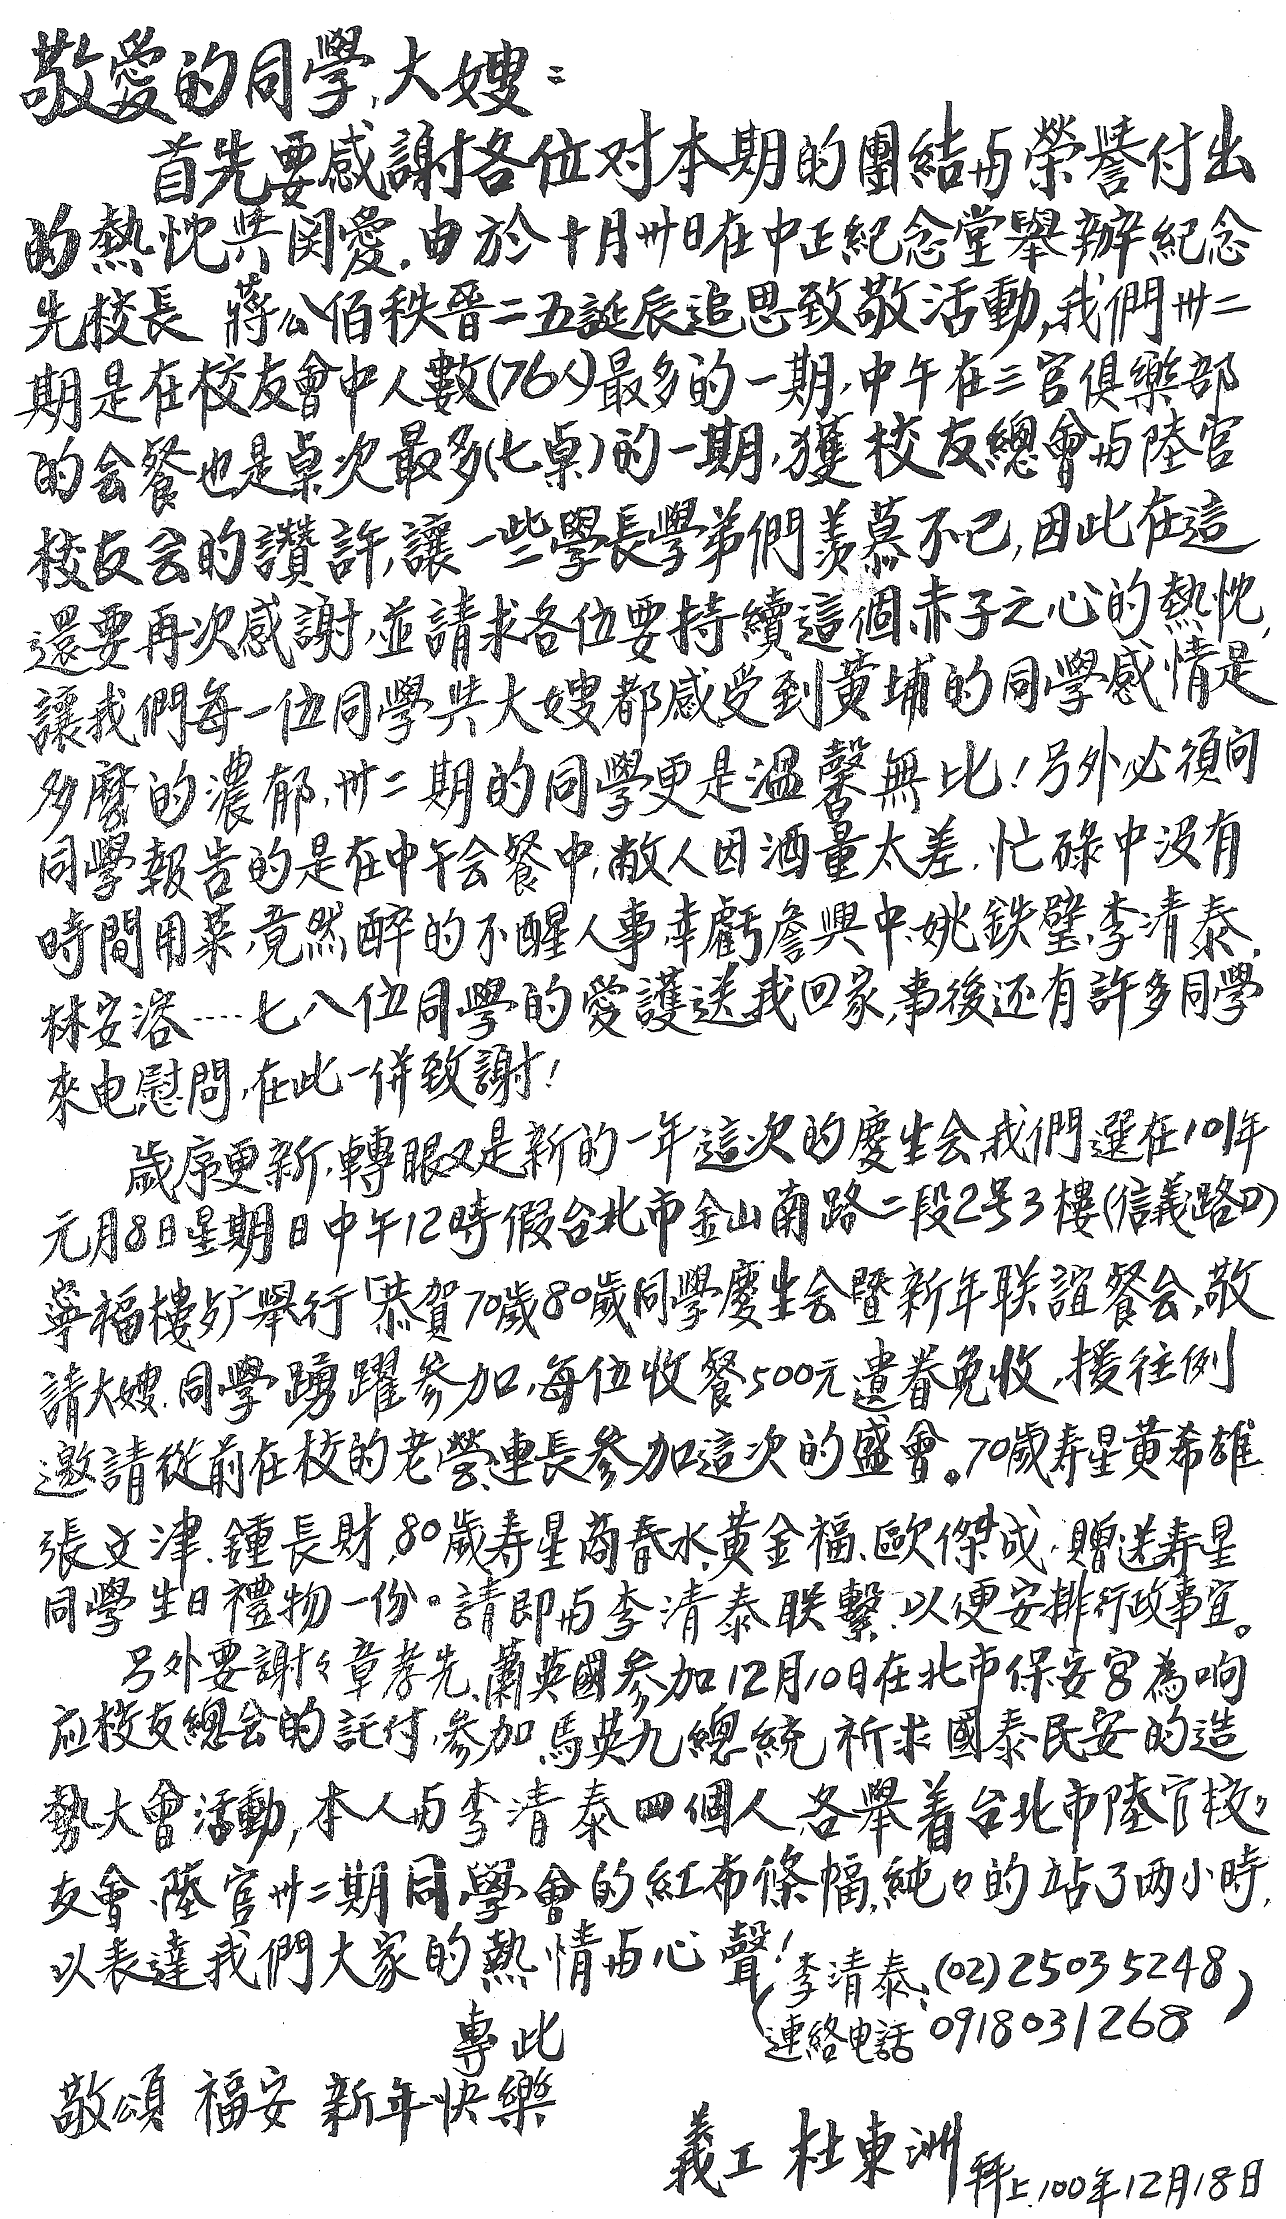 敬愛的同學,大嫂:
首先要感謝各位对本期的團結与榮譽付出
的熱忱與関愛.由於十月卅日在中正紀念堂舉辦紀念
先校長 蔣公佰秩晉二五誕辰追思致敬活動,我們卅二
期是在校友會中人數(76人)最多的一期,中午在三官俱樂部
的会餐也是桌次最多(七桌)的一期,獲校友總會与陸官
校友会的讚許,讓一些學長學弟們羡慕不已,因此在這
還要再次感謝,並請求各位要持續這個赤子之心的熱忱,
讓我們每一位同學與大嫂都感受到黄埔的同學感情是
多麼的濃郁,卅二期的同學更是溫馨無比!另外必須向
同學報告的是在中午会餐中,敝人因酒量太差,忙碌中没有
時間用菜,竟然醉的不醒人事,幸虧詹興中、姚鉄璧、李清泰、
林安溶....七八位同學的愛護送我回家,事後还有許多同學
來电慰問,在此一併致謝!
歲序更新,轉眼又是新的一年,這次的慶生会我們選在101年
元月8日星期日中午12時假台北市金山南路二段2号3樓(信義路口)
寧福樓歺厅舉行「恭賀70歲80歲同學慶生会暨新年联誼餐会,敬
請大嫂.同學踴躍參加,每位收餐500元遺眷免收,援往例
邀請從前在校的老營、連長參加這次的盛會。70歲寿星黄希雄
張文津、鍾長財,80歲寿星商春水、黄金福、歐傑成,贈送寿星
同學生日禮物一份。請即与李清泰联繫.以便安排行政事宜。
另外要謝々章孝先、蕭英國參加12月10日在北市保安宮為响
应校友總会的託付,參加馬英九總統祈求國泰民安的造
勢大會活動,本人与李清泰四個人,各舉着台北市陸官校々
友會、陸官卅二期同學會的紅布條幅,純々的站了两小時,
以表達我們大家的熱情与心聲!
(李清泰:(02)25035248
連絡电話 0918031268)
專此
敬頌 福安 新年快樂
義工 杜東洲 拜上.100年12月18日